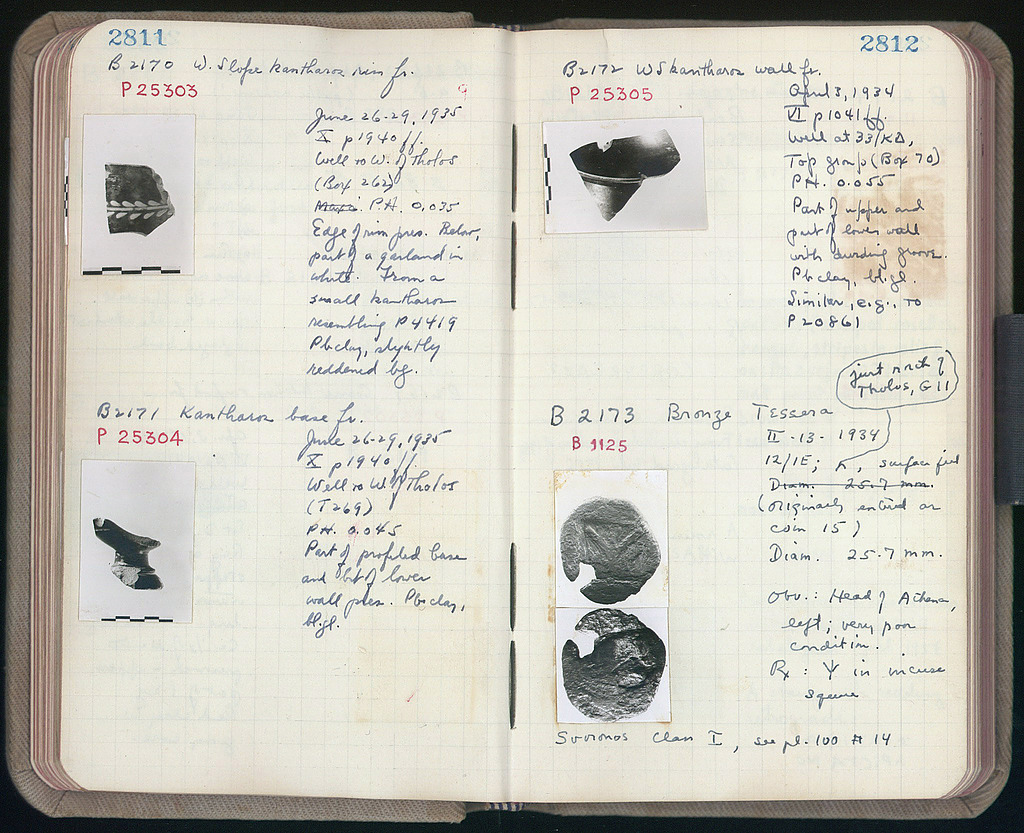 2811
B 2170 W. Slope kantharos rim fr.
P 25303
June 26-29, 1935
X p 1940 ff.
Well to W. of Tholos
(Box 262)
P.H. 0,035
Edge of rim pres. Below,
part of a garland in
white. From a
small kantharos
resembling P 4419
Pb clay, slightly
reddened bg.
B 2171 Kantharos base fr.
P 25304
June 26-29, 1935
X p 1940 ff.
Well to W. of Tholos
(T 269)
P.H. 0.045
Part of profiled base
and bit of lower
wall pres. Pb clay,
bl.gl.
2812
B 2172 WS kantharos wall fr.
P 25305
April 3, 1934
VI p 1041 ff.
Well at 33/ΚΔ,
Top group (Box 70)
P.H. 0.055
Part of upper and
part of lower wall
with dividing groove.
Pb clay, bl.gl.
Similar, e.g., to
P 20861
just north of
Tholos, G 11
B 2173 Bronze Tessera
P B 1125
II-13-1934
12/ΙΕ; surface fill
Diam. 25.7 mm.
(originally entered as
coin 15)
Diam. 25.7 mm.
Obv.: Head of Athena,
left; very poor
condition.
Rx: Ψ in incuse
square
Svoronos Class I, see pl. 100 # 14